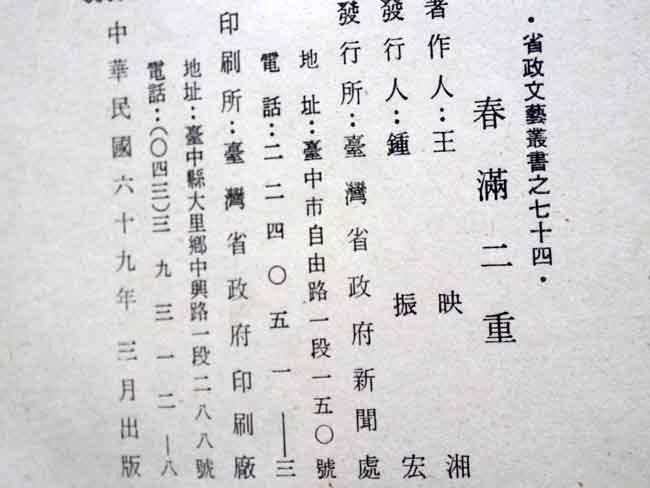 •省政文藝叢書之七十四•
春滿二重
著作人：王映湘
發行人：鍾振宏
發行所：臺灣省政府新聞處
地址：臺中市自由路一段一五〇號
電話：二二四〇五一—三
印刷所：臺灣省政府印刷廠
地址：臺中縣大里鄉中興路一段二八八號
電話：（〇四三）三九三一二—八
中華民國六十九年三月出版